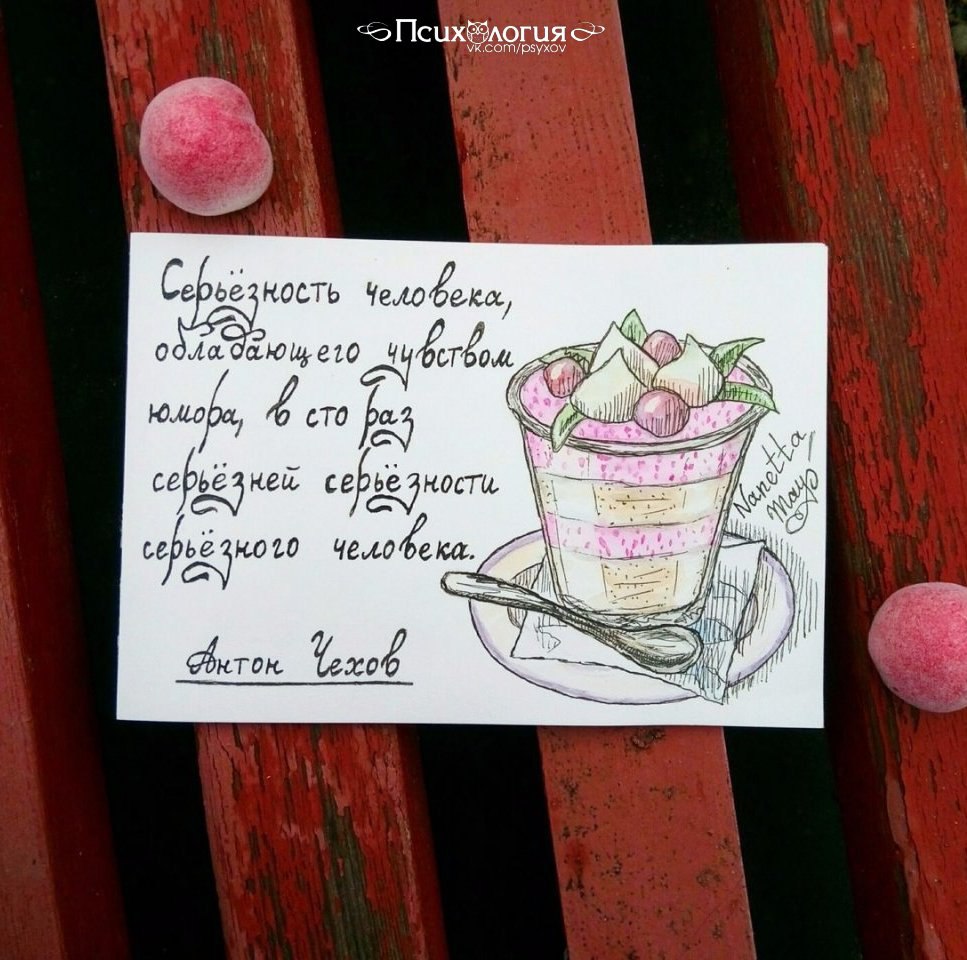 Психология
vk.com/psyxov
Серьёзность человека,
обладающего чувством
юмора, в сто раз
серьёзней серьёзности
серьёзного человека.
Антон Чехов
Nanetta
Mayo